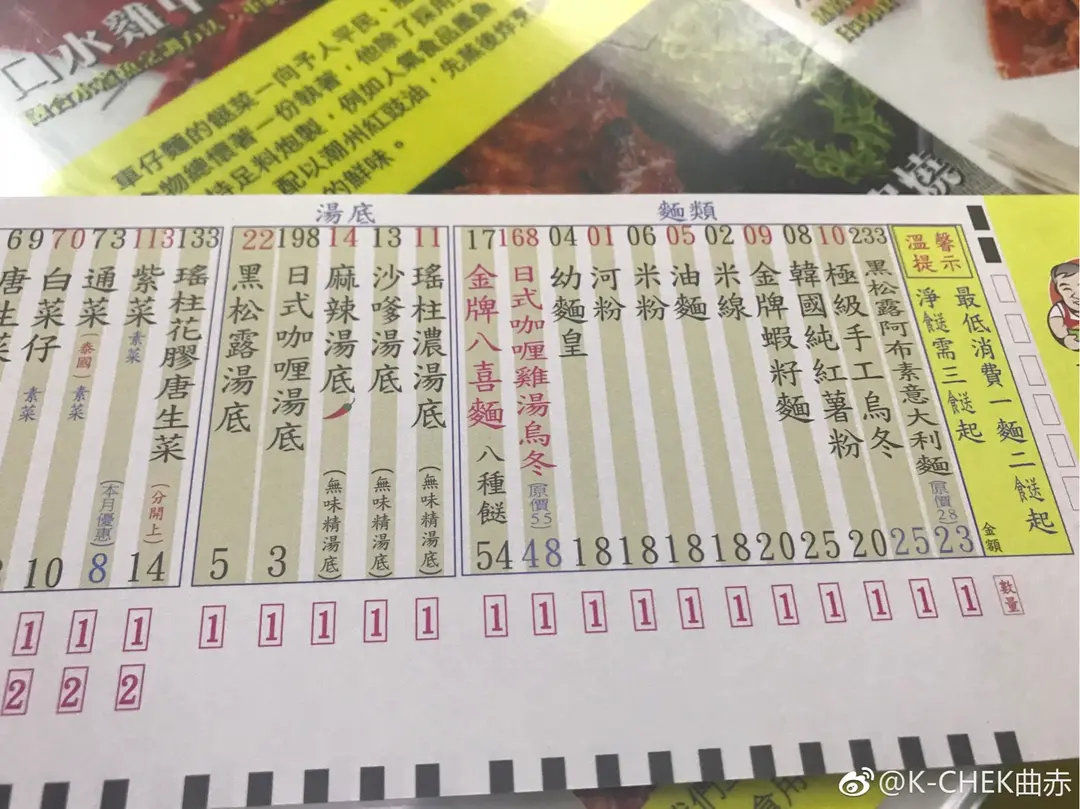 口水雞
車仔麵的餸菜一向予人平民、
物總懷著一份執著,他除了採用
特足料炮製,例如人氣食品鱲魚
配以潮州紅豉油,先蒸後炸烹
的鮮味。
燒
麵類
湯底
溫馨提示
最低消費一麵二餸起
淨餸需三餸起
金額
數量
233 黑松露阿布素意大利麵 (原價28) 23
10 極級手工烏冬 25
08 韓國純紅薯粉 20
09 金牌蝦籽麵 25
02 米線 20
05 油麵 18
06 米粉 18
01 河粉 18
04 幼麵皇 18
168 日式咖喱雞湯烏冬 (原價55) 48
17 金牌八喜麵 八種餸 54
11 瑤柱濃湯底 (無味精湯底)
13 沙嗲湯底 (無味精湯底)
14 麻辣湯底 (無味精湯底)
198 日式咖喱湯底 3
22 黑松露湯底 5
133 瑤柱花膠唐生菜 (分開上) 14
113 紫菜 素菜 (本月優惠) 8
73 通菜 (泰國) 素菜 10
70 白菜仔 素菜
69 唐生菜
1 1 1 1 1 1 1 1 1 1 1 1 1 1 1 1 1 1 1
2 2 2
@K-CHEK曲赤